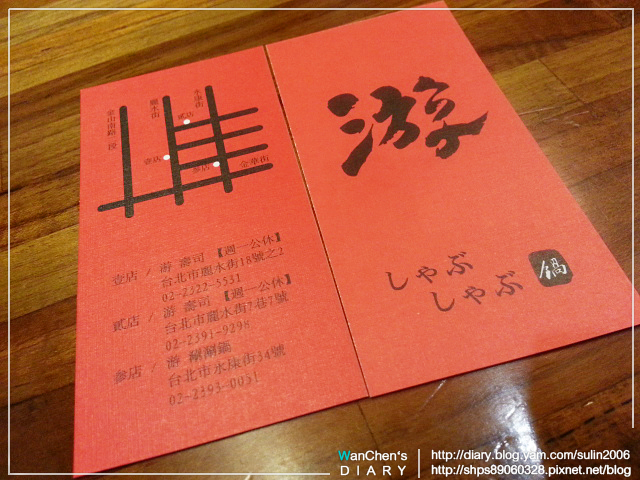 金山南路二段
麗水街
永康街
貳店
壹店
參店
金華街
壹店 / 游 壽司 【週一公休】
台北市麗水街18號之2
02-2322-5531
貳店 / 游 壽司 【週一公休】
台北市麗水街7巷7號
02-2391-9298
參店 / 游 涮涮鍋
台北市永康街34號
02-2393-0031
游
しゃぶ
しゃぶ 鍋
WanChen's
DIARY
http://diary.blog.yam.com/sulin2006
http://shps89060328.pixnet.net/blog